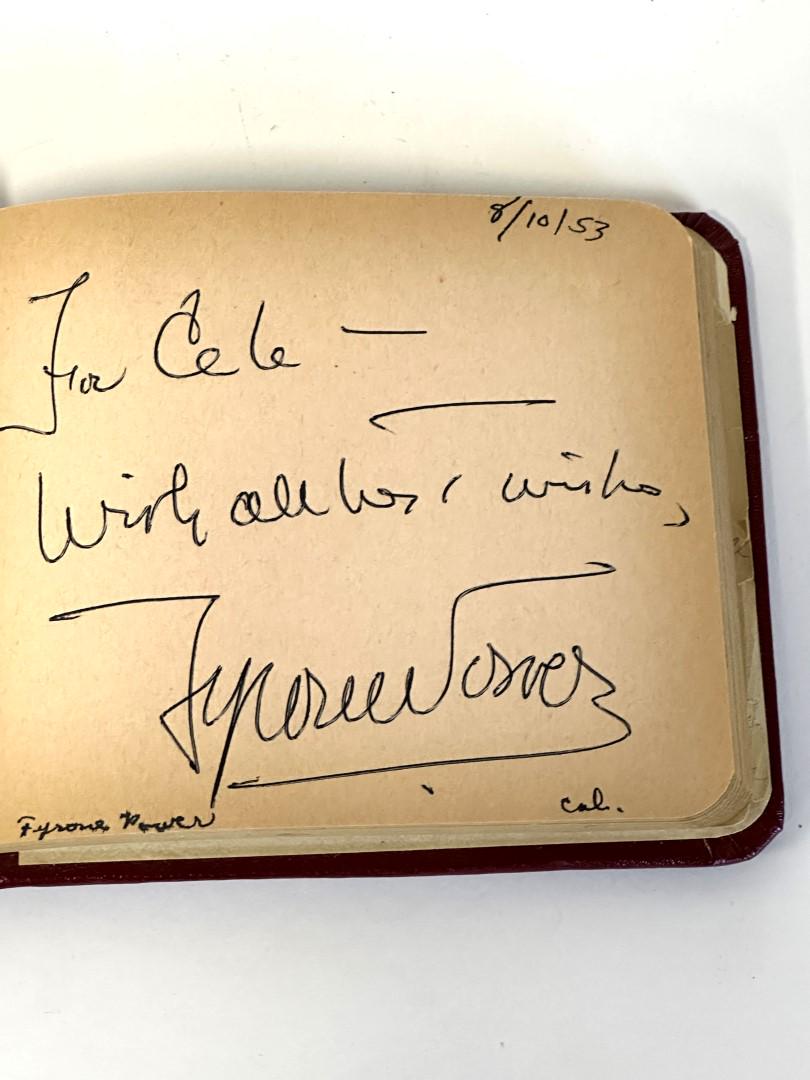 8/10/53
For Cele —
With all best wishes,
Tyrone Power
cal.
Tyrone Power